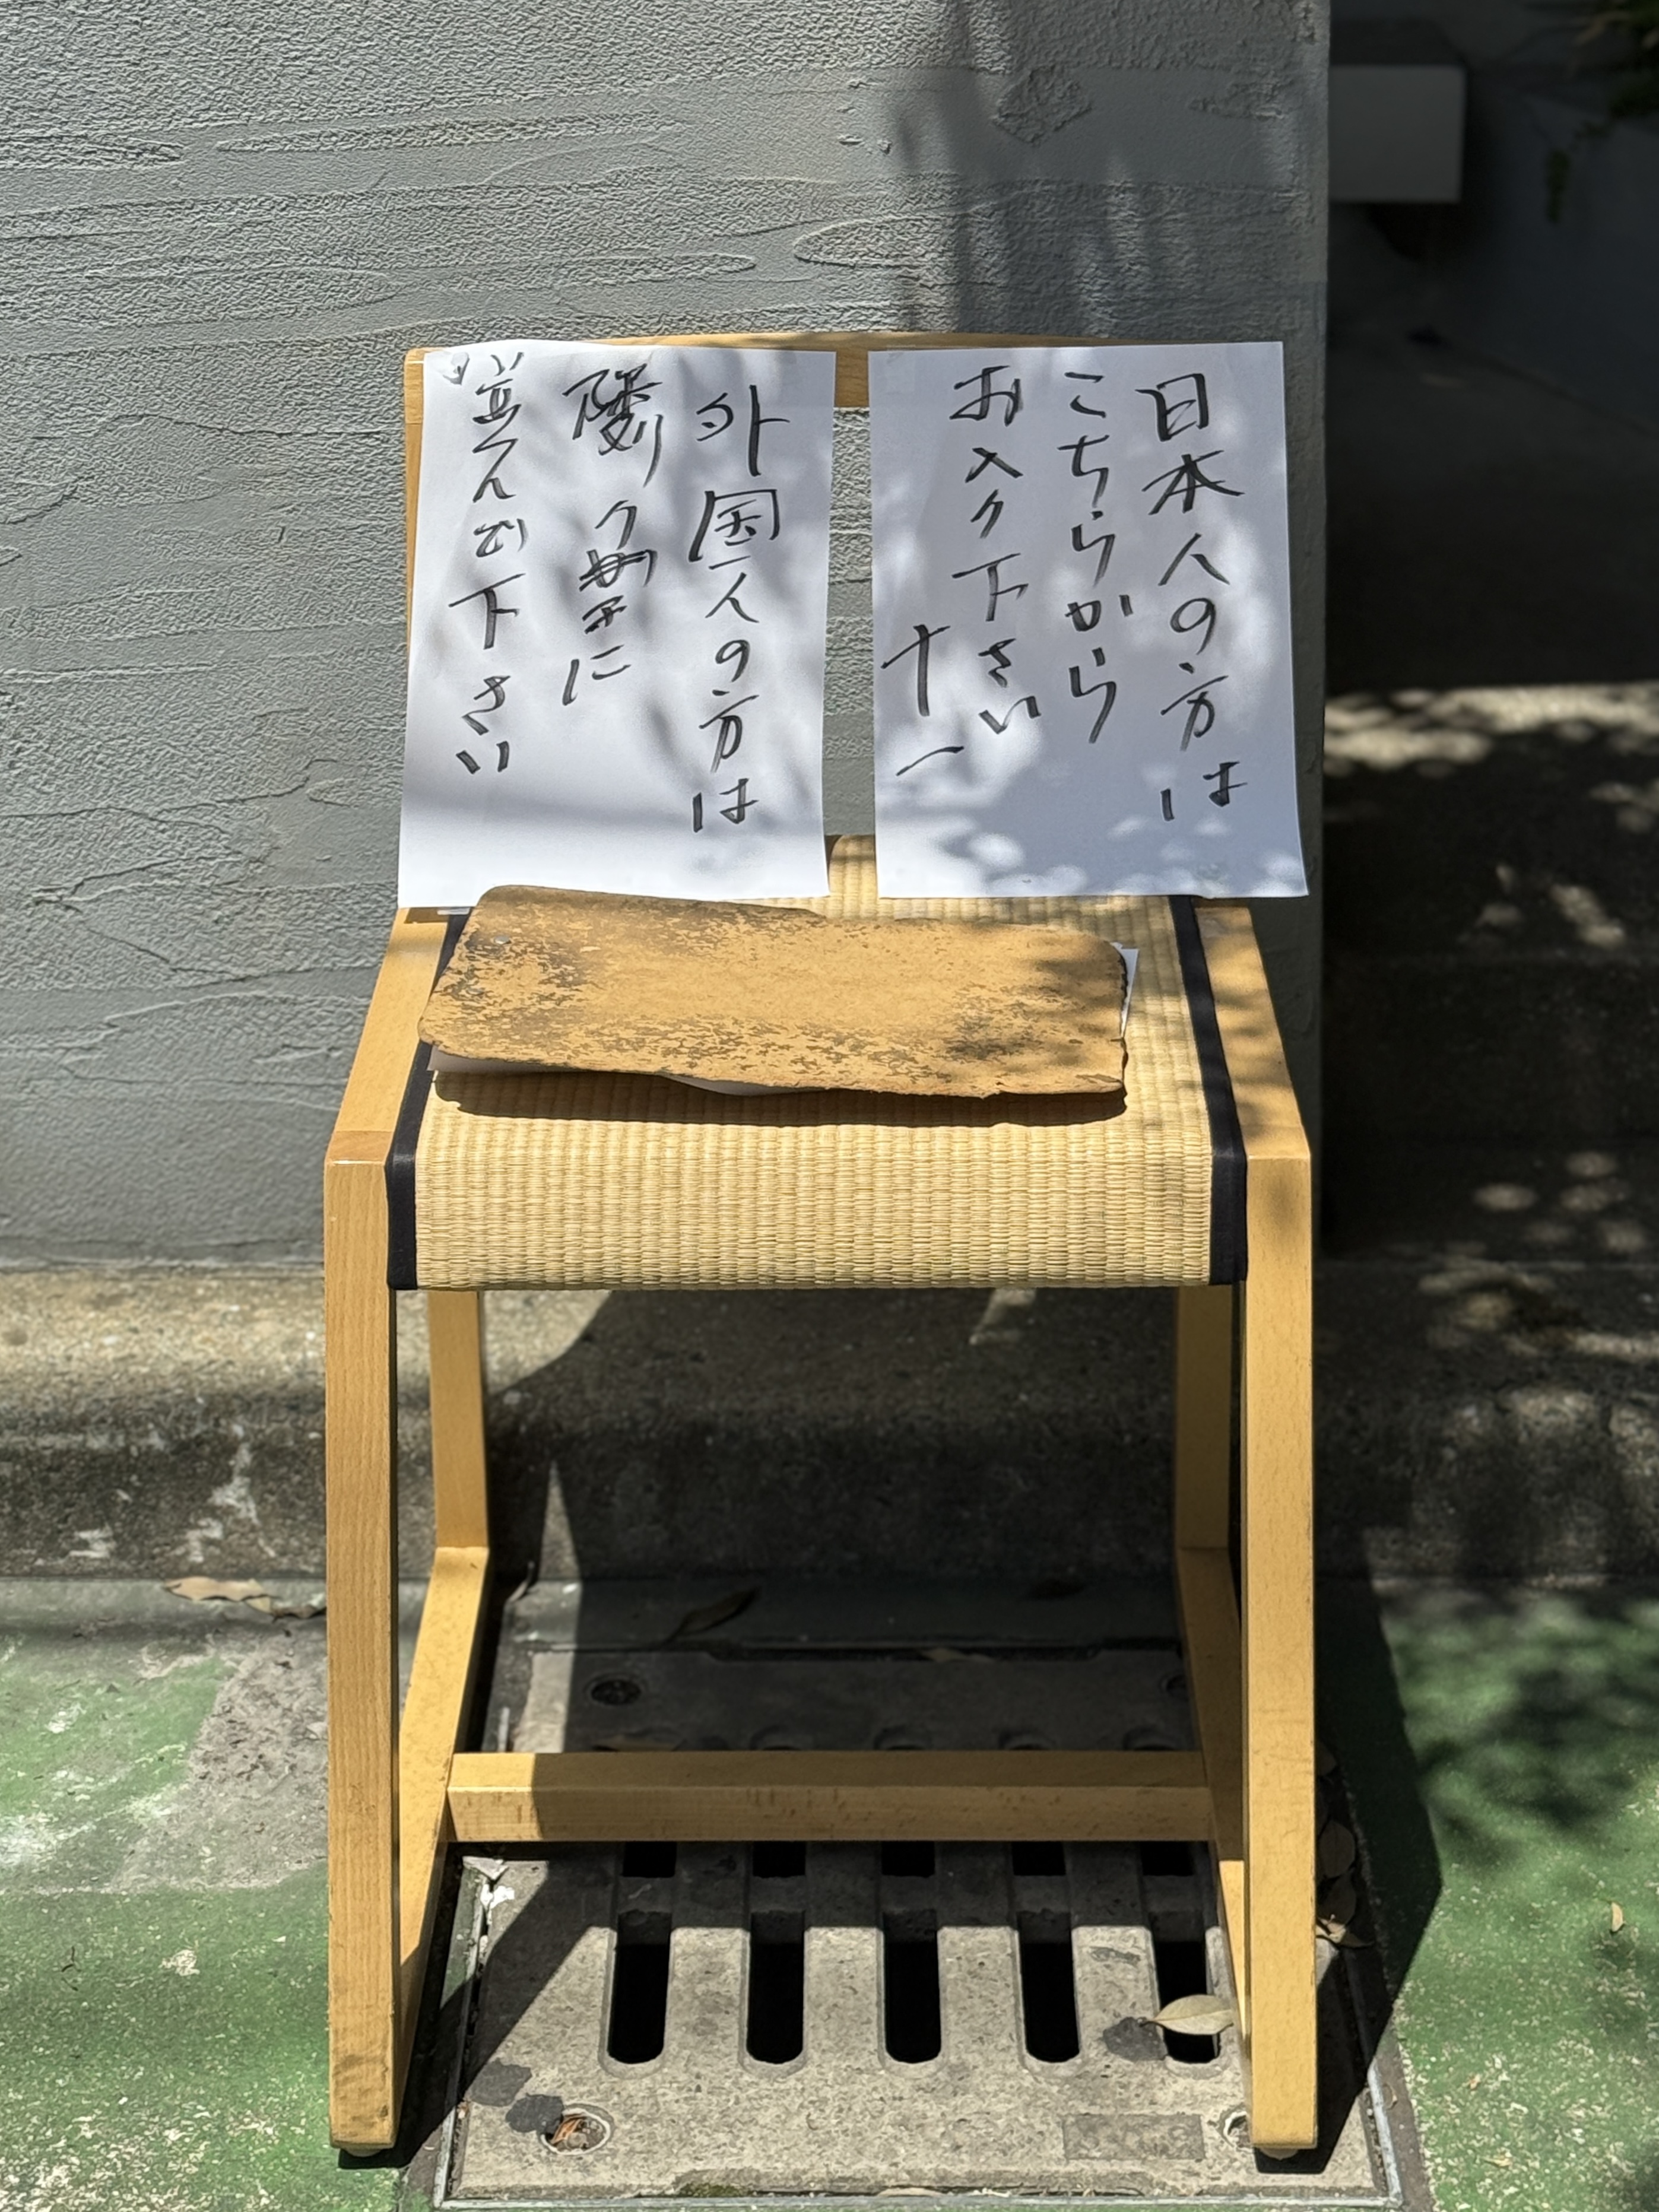 日本人の方は
こちらから
お入り下さい
外国人の方は
隣り に
並んで下さい